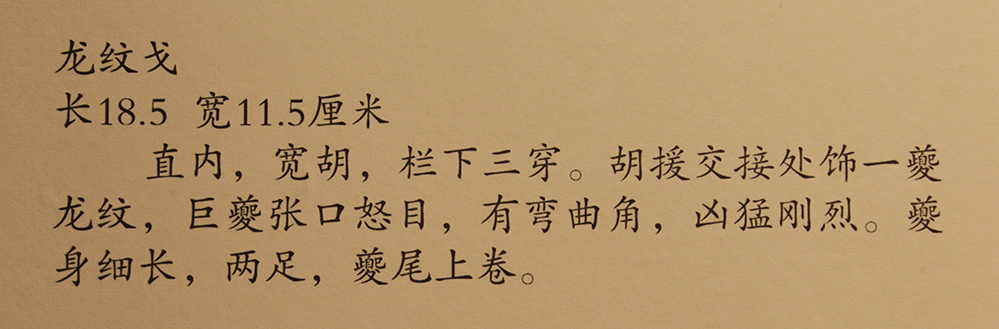 龙纹戈
长18.5 宽11.5厘米
直内，宽胡，栏下三穿。胡援交接处饰一夔
龙纹，巨夔张口怒目，有弯曲角，凶猛刚烈。夔
身细长，两足，夔尾上卷。